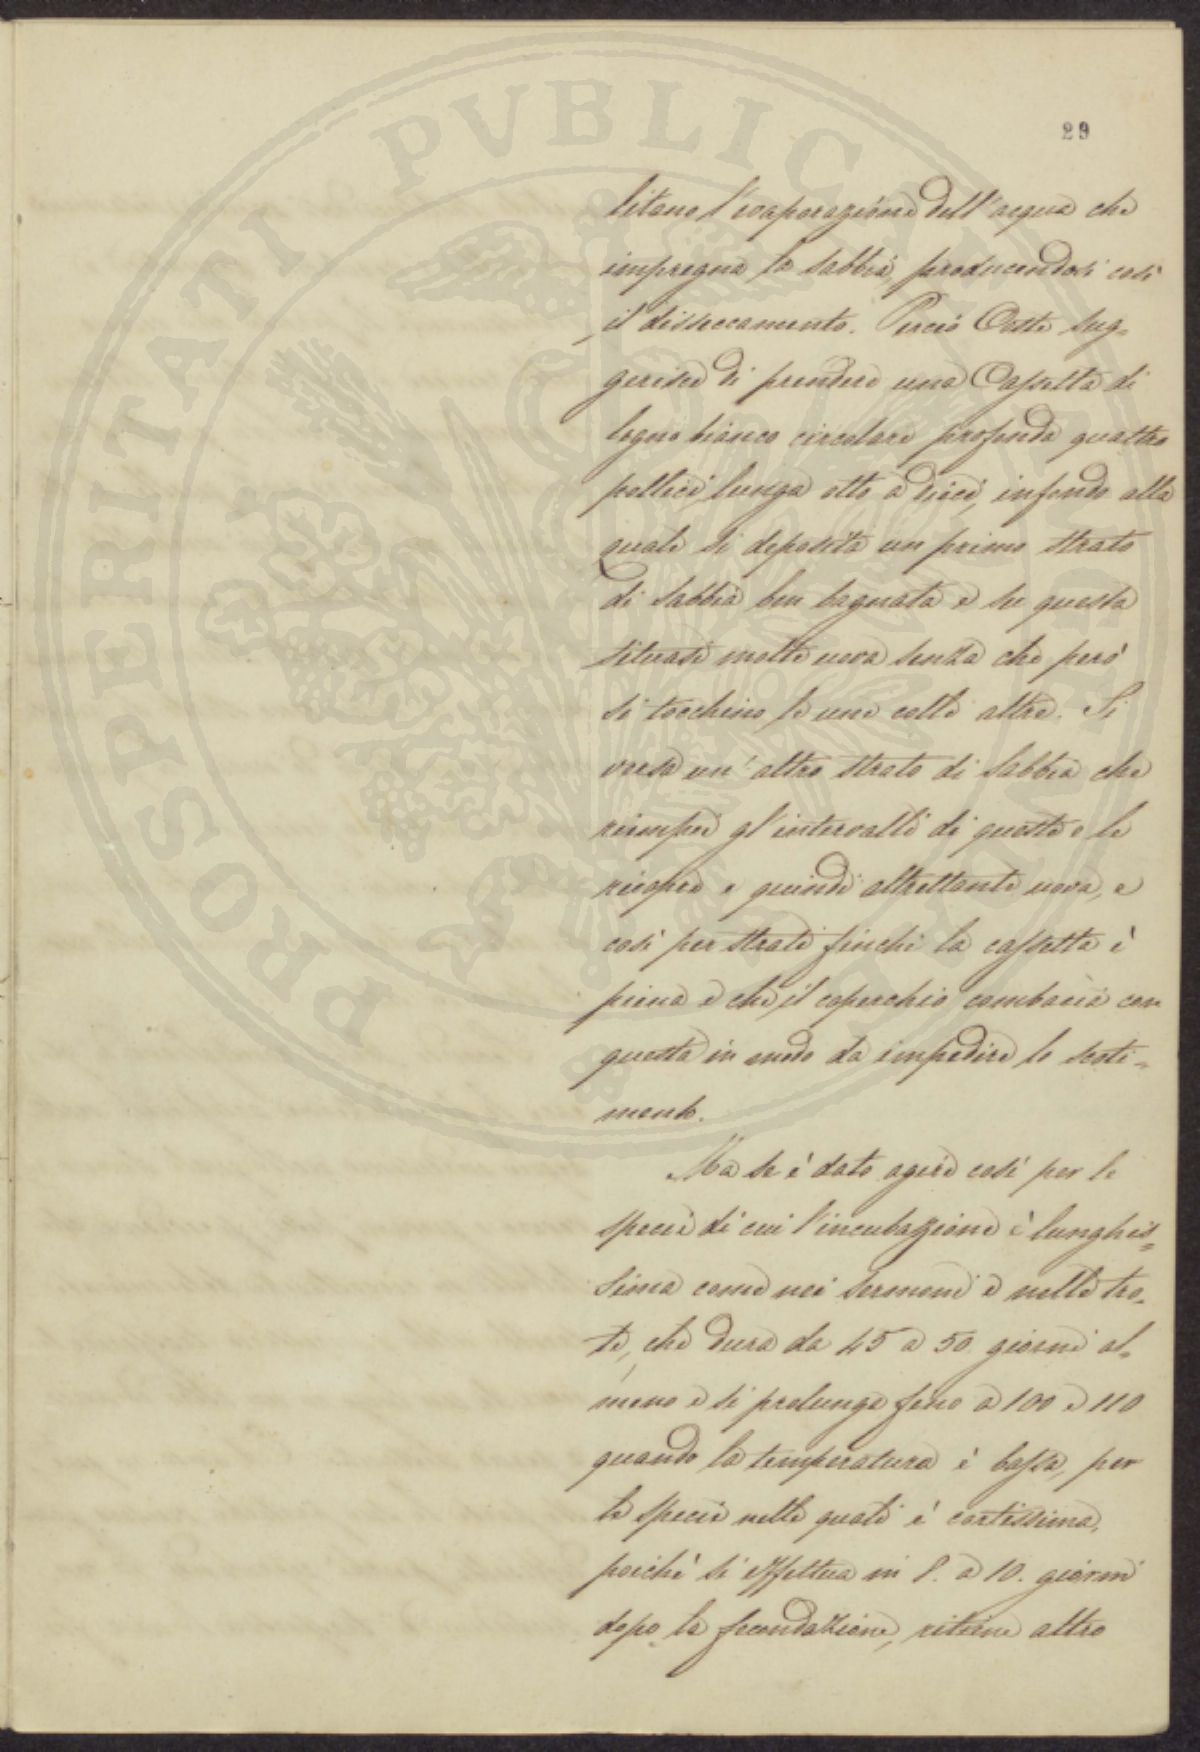 29
litano l'evaporazione dell'acqua che
impregna la sabbia, producendosi così
il disseccamento. Perciò Coste sug-
gerisce di prendere una Cassetta di
legno bianco circolare profonda quattro
pollici, lunga otto a dieci, in fondo alla
quale si deposita un primo strato
di sabbia ben bagnata e su questa
situasi molte uova senza che però
si tocchino le une colle altre. Si
versa un'altro strato di sabbia che
riempie gl'intervalli di queste e le
ricopre e quindi altrettante uova, e
così per strati finchè la cassetta è
piena e che il coperchio combacia con
questa in modo da impedire lo scoti-
mento.
Ma se è dato agire così per le
specie di cui l'incubazione è lunghis-
sima come nei sermoni e nelle tro-
te, che dura da 45 a 50 giorni al-
meno e si prolunga fino a 100 e 110
quando la temperatura è bassa, per
le specie nelle quali è cortissima,
poichè si effettua in 8. a 10. giorni
dopo la fecondazione, ritiene altro
PROSPERITATI PVBLICAE